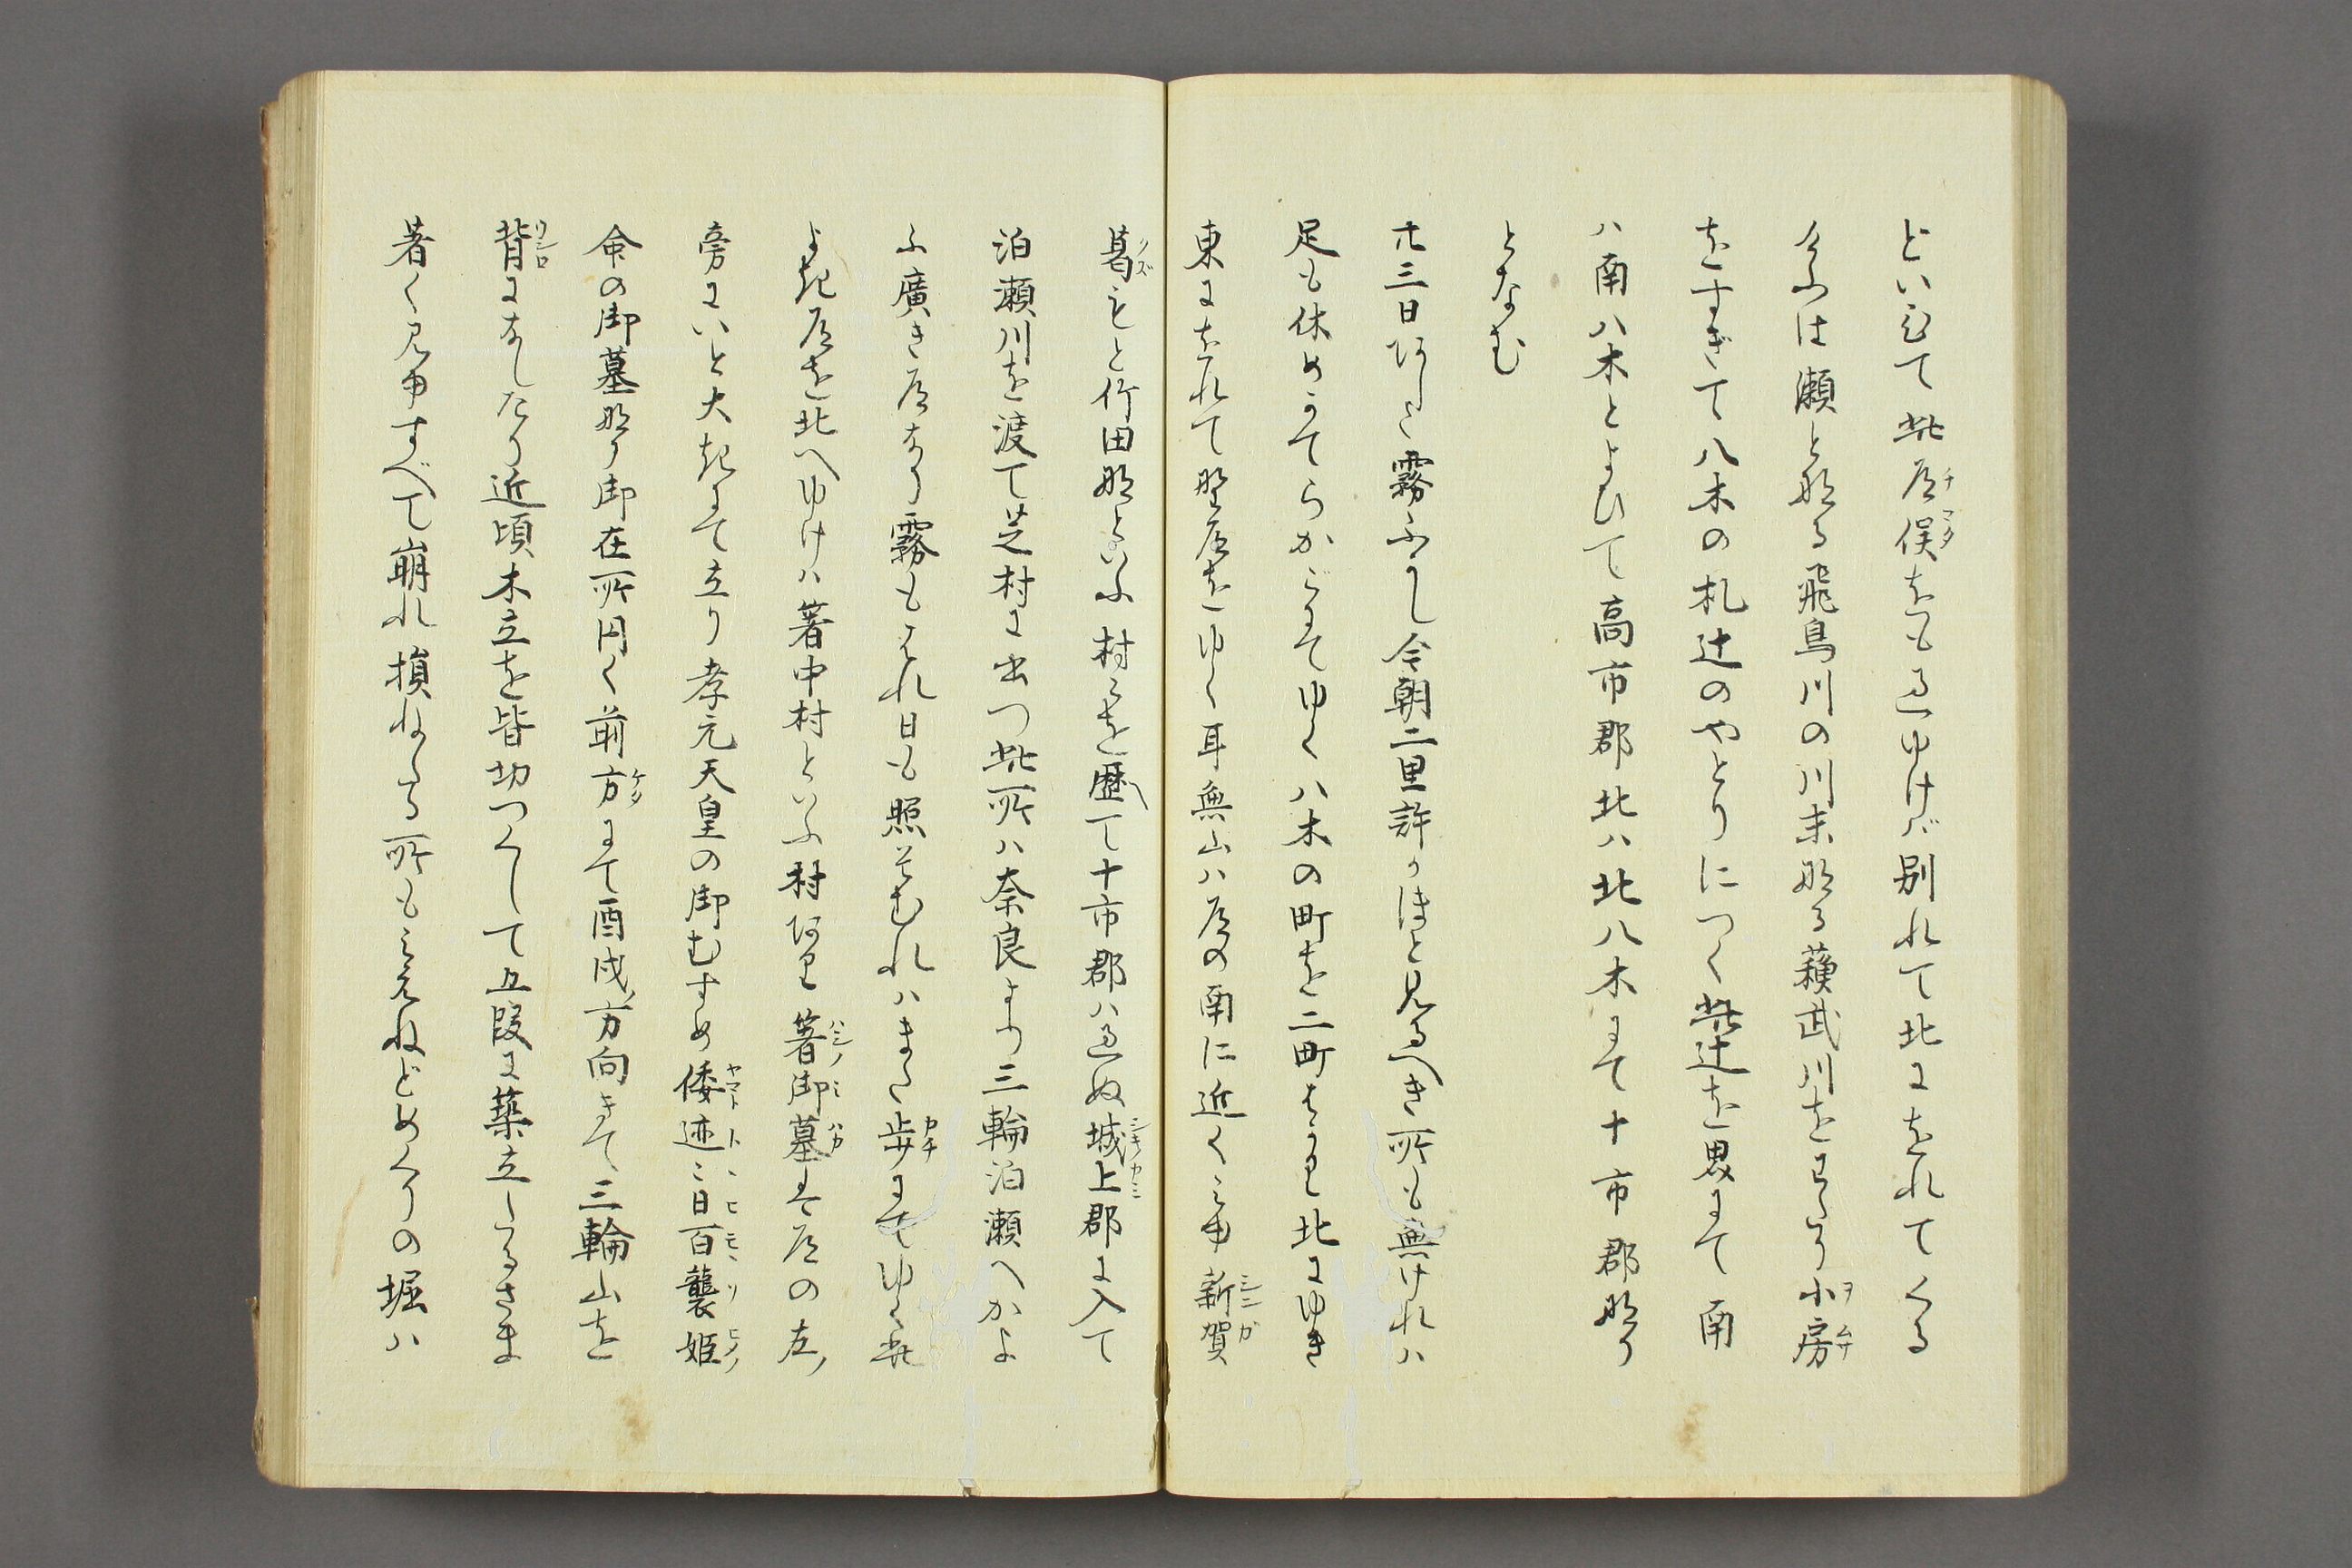 といひて此道俣をも過ゆけバ別れて北にをれてくる
くふは瀬と那る飛鳥川の川末那る蘓武川をわたり小房
をすぎて八木の札辻のやとりにつく此辻を界にて南
ハ南八木とよひて高市郡北ハ北八木にて十市郡那り
となむ
廿三日阿した霧ふかし今朝二里許かほと見るへき所も無けれハ
足も休めかてらかごにてゆく八木の町を二町はかり北にゆき
東にをれて野道をゆく耳無山ハ道の南に近くみゆ新賀
葛もと竹田那といふ村々を歴て十市郡ハ過ぬ城上郡に入て
泊瀬川を渡て芝村に出つ此所ハ奈良より三輪泊瀬へかよ
ふ廣き道なり霧もはれ日も照そむれハまた歩にてゆく此
よき道を北へゆけハ箸中村といふ村阿り箸御墓は道の左ノ
旁にいと大きにて立り孝元天皇の御むすめ倭迹々日百襲姫
命の御墓那り御在所円く前方にて酉戌ノ方向きて三輪山を
背になしたり近頃木立を皆切つくして五段に築立たるさま
著く見ゆすべて崩れ損ねたる所もみえねどめくりの堀ハ